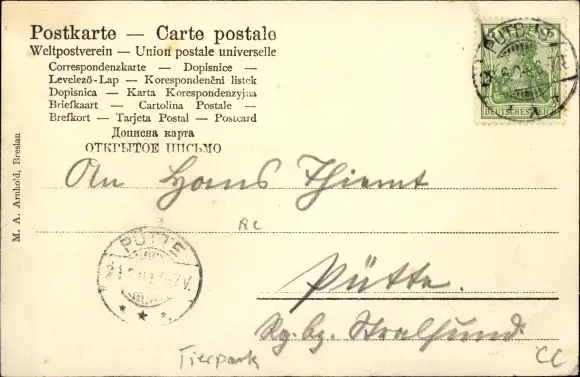 Postkarte — Carte postale
Weltpostverein — Union postale universelle
Correspondenzkarte — Dopisnice —
Levelező-Lap — Korespondenční lístek
Dopisnica — Karta Korespondenzyjna
Briefkaart — Cartolina Postale —
Brefkort — Tarjeta Postal — Postcard
Дописна карта
ОТКРЫТОЕ ПИСЬМО
DEUTSCHES REICH
M. A. Arnhold, Breslau
An Hans Thiemt
Re
PÜTTE
Pütte.
Rg. bz. Stralsund.
Tierpark
CC